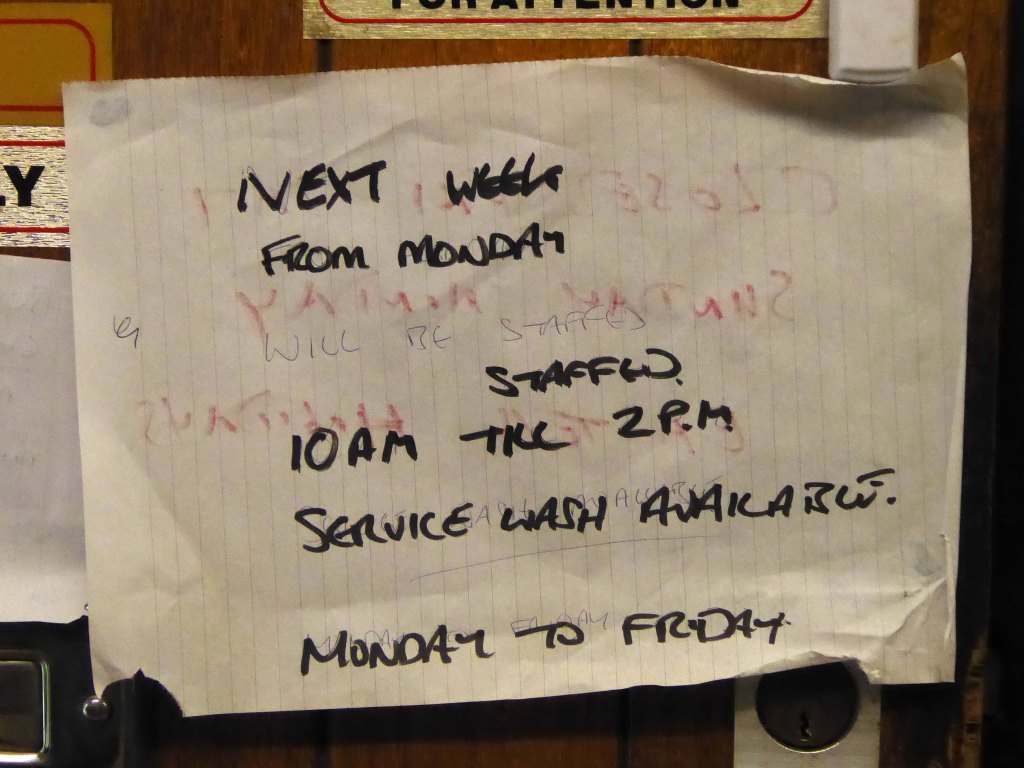 FOR ATTENTION
LY
NEXT WEEK
FROM MONDAY
WILL BE STAFFED
STAFFED.
10 AM TILL 2 P.M
SERVICE WASH AVAILABLE.
MONDAY TO FRIDAY.